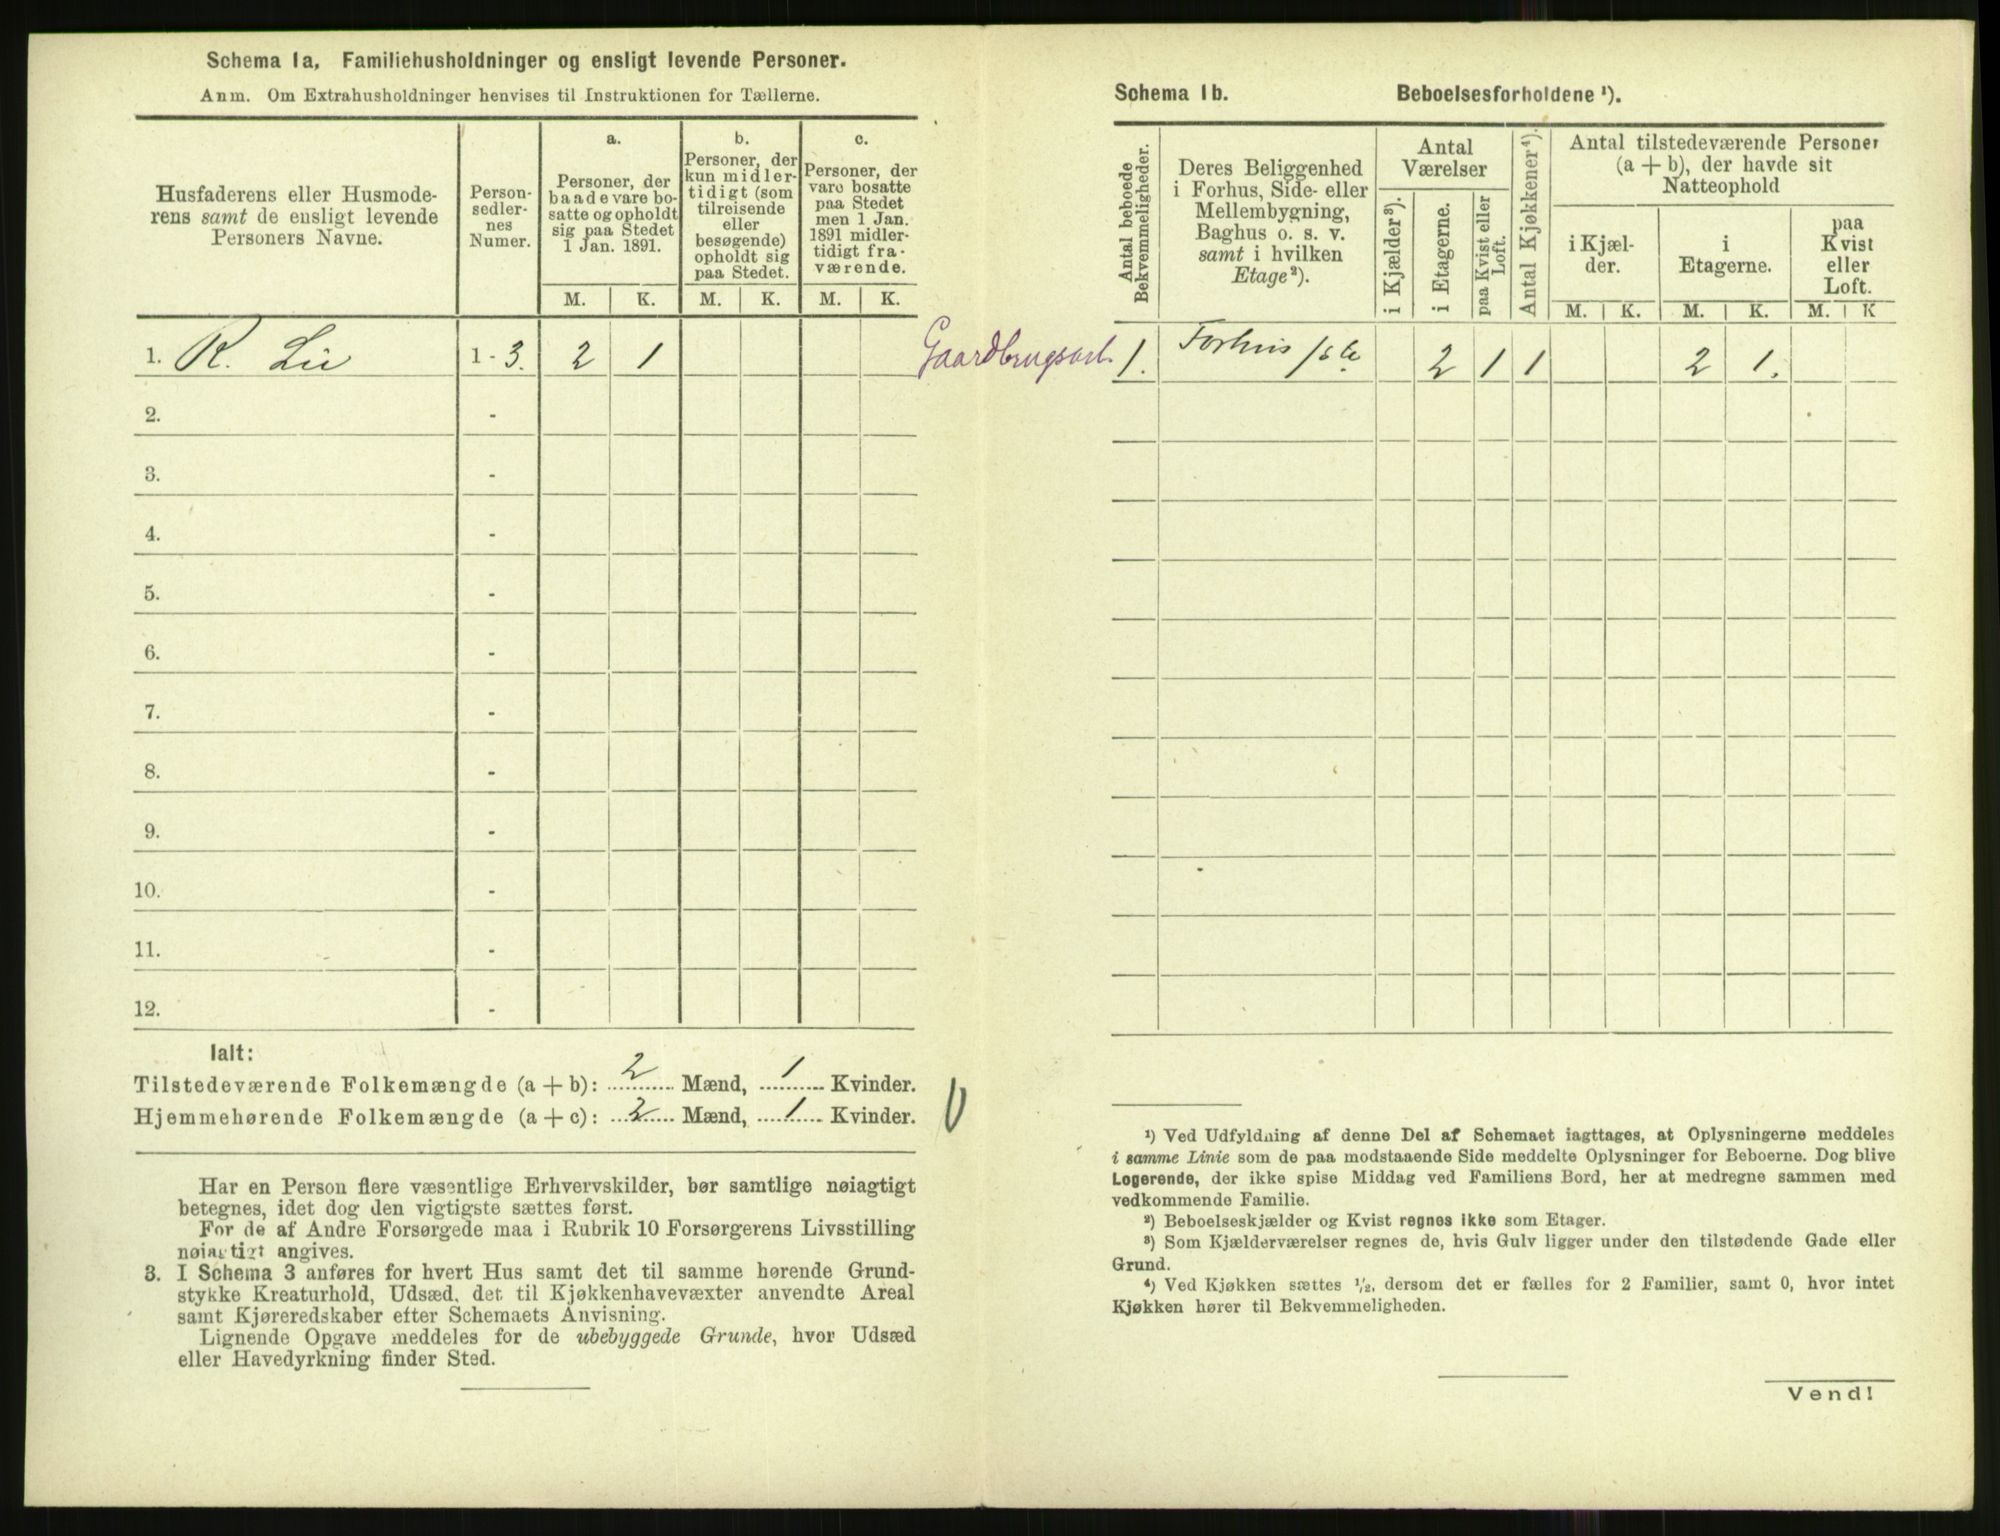 Schema 1a. Familiehusholdninger og ensligt levende Personer.
Anm. Om Extrahusholdninger henvises til Instruktionen for Tællerne.
Husfaderens eller Husmode-
rens samt de ensligt levende
Personers Navne.
Person-
sedler-
nes
Numer.
a.
Personer, der
baade vare bo-
satte og opholdt
sig paa Stedet
1 Jan. 1891.
b.
Personer, der
kun midler-
tidigt (som
tilreisende
eller
besøgende)
opholdt sig
paa Stedet.
c.
Personer, der
vare bosatte
paa Stedet
men 1 Jan.
1891 midler-
tidigt fra-
værende.
M. K. M. K. M. K.
1. R. Lie 1 - 3. 2 1
Gaardbrugsarb.
2. -
3. -
4. -
5. -
6. -
7. -
8. -
9. -
10. -
11. -
12. -
Ialt:
Tilstedeværende Folkemængde (a + b): 2 Mænd, 1 Kvinder.
Hjemmehørende Folkemængde (a + c): 2 Mænd, 1 Kvinder.
Har en Person flere væsentlige Erhvervskilder, bør samtlige nøiagtigt
betegnes, idet dog den vigtigste sættes først.
For de af Andre Forsørgede maa i Rubrik 10 Forsørgerens Livsstilling
nøiagtigt angives.
3. I Schema 3 anføres for hvert Hus samt det til samme hørende Grund-
stykke Kreaturhold, Udsæd, det til Kjøkkenhavevæxter anvendte Areal
samt Kjøreredskaber efter Schemaets Anvisning.
Lignende Opgave meddeles for de ubebyggede Grunde, hvor Udsæd
eller Havedyrkning finder Sted.
Schema 1b. Beboelsesforholdene ¹).
Antal beboede
Bekvemmeligheder.
Deres Beliggenhed
i Forhus, Side- eller
Mellembygning,
Baghus o. s. v.
samt i hvilken
Etage²).
Antal
Værelser
i Kjælder³).
i Etagerne.
paa Kvist eller
Loft.
Antal Kjøkkener⁴).
Antal tilstedeværende Personer
(a + b), der havde sit
Natteophold
i Kjæl-
der.
i
Etagerne.
paa
Kvist
eller
Loft.
M. K. M. K. M. K
1. Forhus 2 1 1 2 1.
¹) Ved Udfyldning af denne Del af Schemaet iagttages, at Oplysningerne meddeles
i samme Linie som de paa modstaaende Side meddelte Oplysninger for Beboerne. Dog blive
Logerende, der ikke spise Middag ved Familiens Bord, her at medregne sammen med
vedkommende Familie.
²) Beboelseskjælder og Kvist regnes ikke som Etager.
³) Som Kjælderværelser regnes de, hvis Gulv ligger under den tilstødende Gade eller
Grund.
⁴) Ved Kjøkken sættes ¹/₂, dersom det er fælles for 2 Familier, samt 0, hvor intet
Kjøkken hører til Bekvemmeligheden.
Vend!